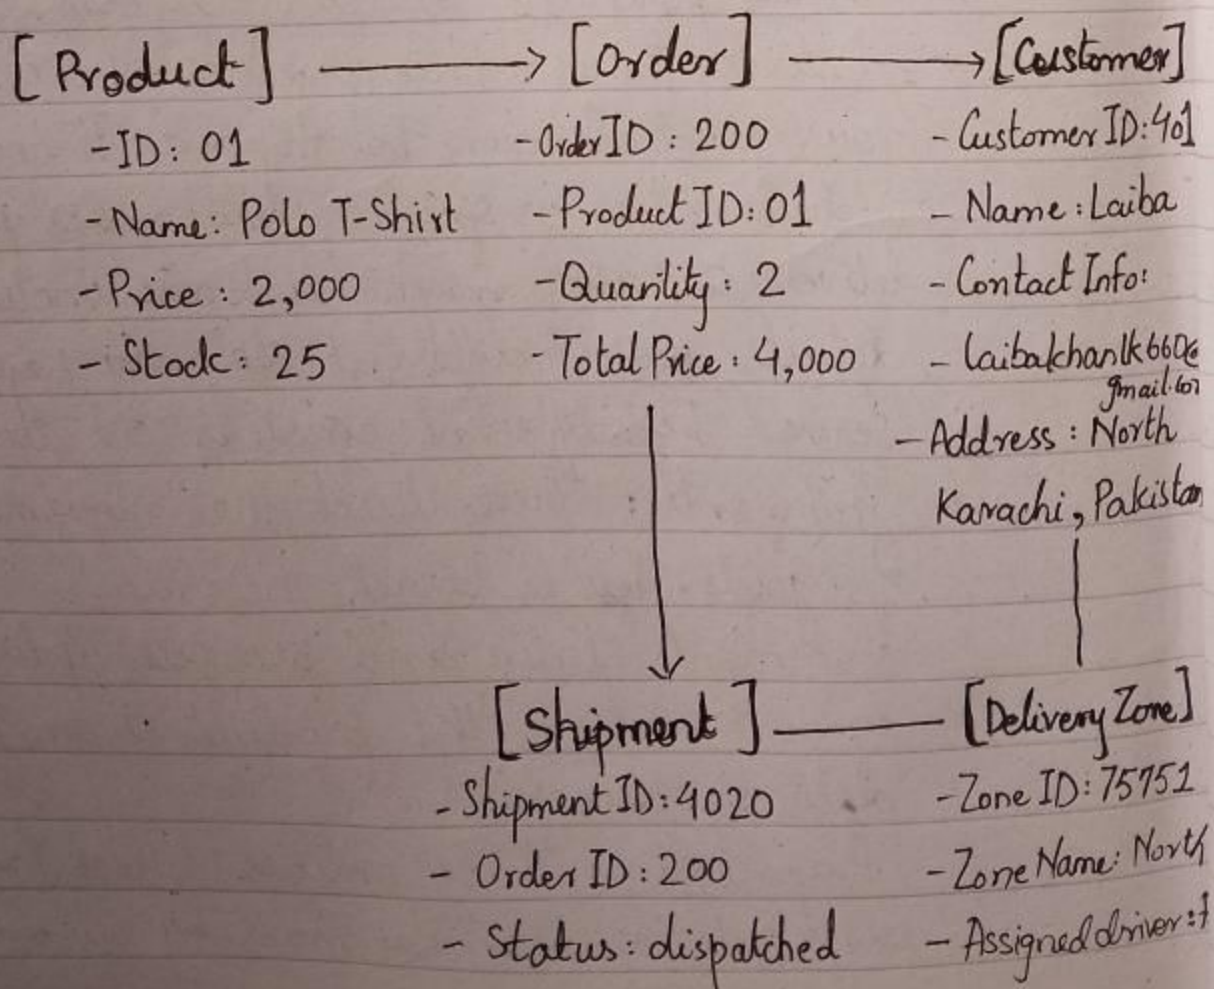 [Product] → [Order] → [Customer]
-ID: 01
-Name: Polo T-Shirt
-Price: 2,000
- Stock: 25
-OrderID: 200
-Product ID: 01
-Quanility: 2
-Total Price: 4,000
- Customer ID: 401
- Name: Laiba
- Contact Info:
- laibakhanlk660@
gmail.co
- Address: North
Karachi, Pakistan
[Shipment]
- Shipment ID: 4020
- Order ID: 200
- Status: dispatched
[Delivery Zone]
-Zone ID: 75751
-Zone Name: North
- Assigned driver: